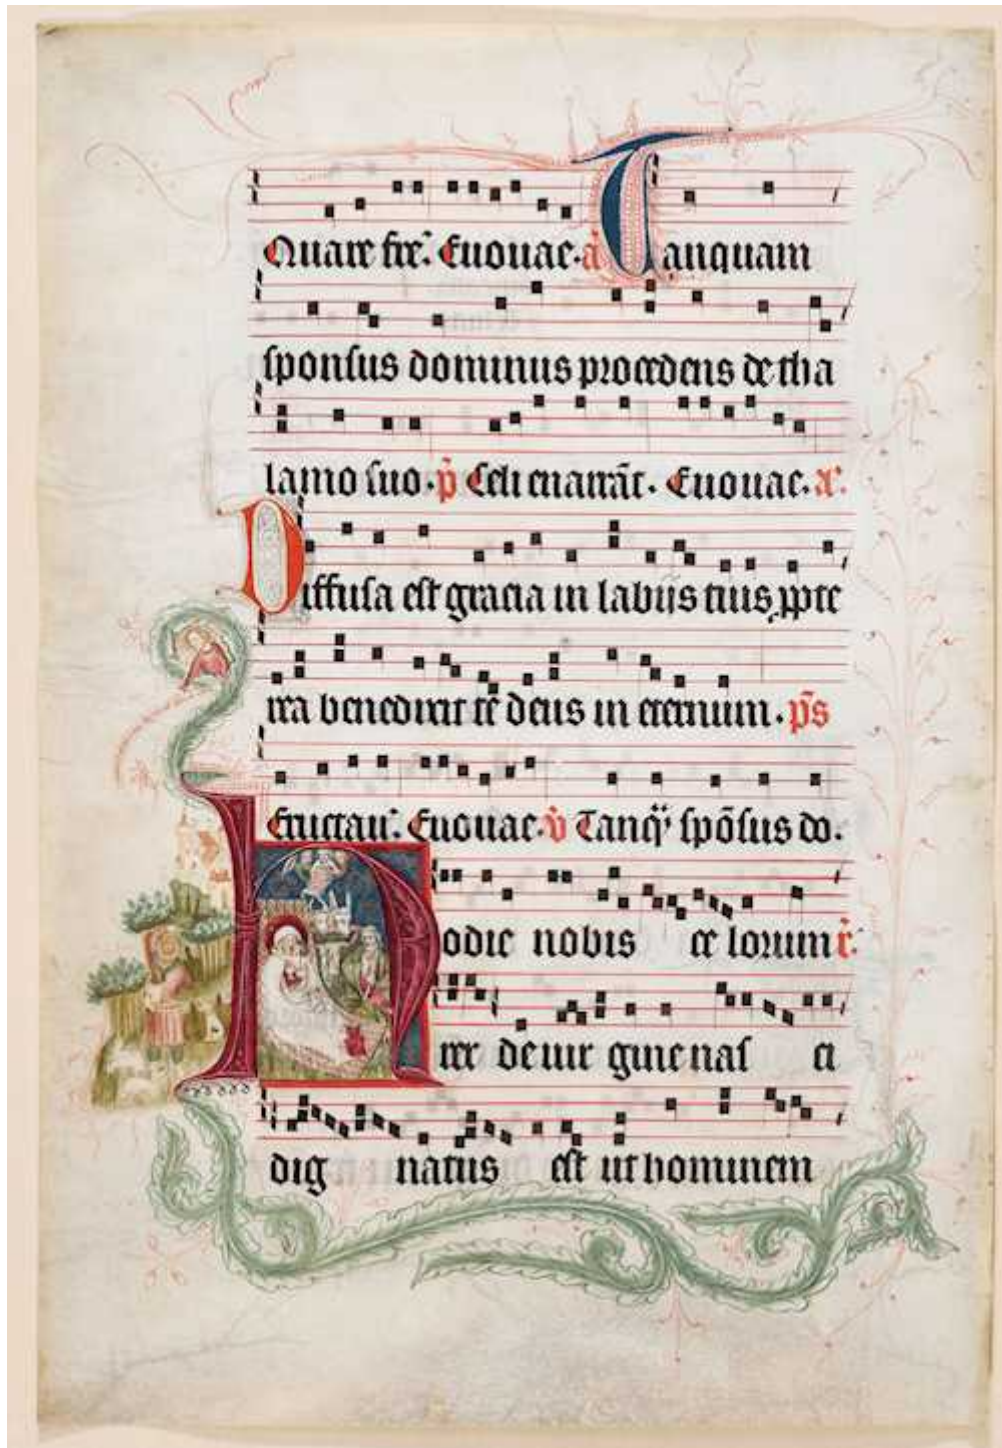 Quare fre. Euouae. a Tanquam
sponsus dominus procedens de tha
lamo suo. p Celi enarrāt. Euouae. a.
Diffusa est gracia in labijs tuis ppte
rea benedixit te deus in eternum. ps
Eructau. Euouae. v Tanq spōsus do.
Hodie nobis ce lorum r.
rex de uir gine nas ci
dig natus est ut hominem